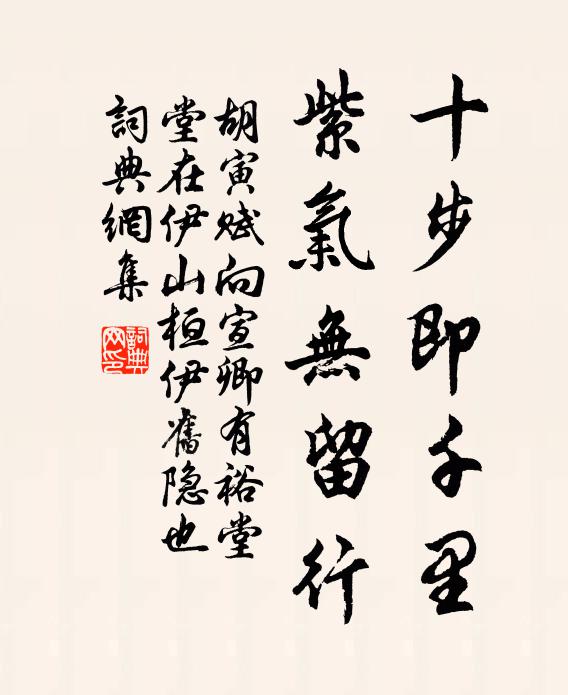 十步即千里
紫氣無留行
胡寅赋向宣卿有裕堂
堂在伊山桓伊舊隐也
詞典網集
詞典网印